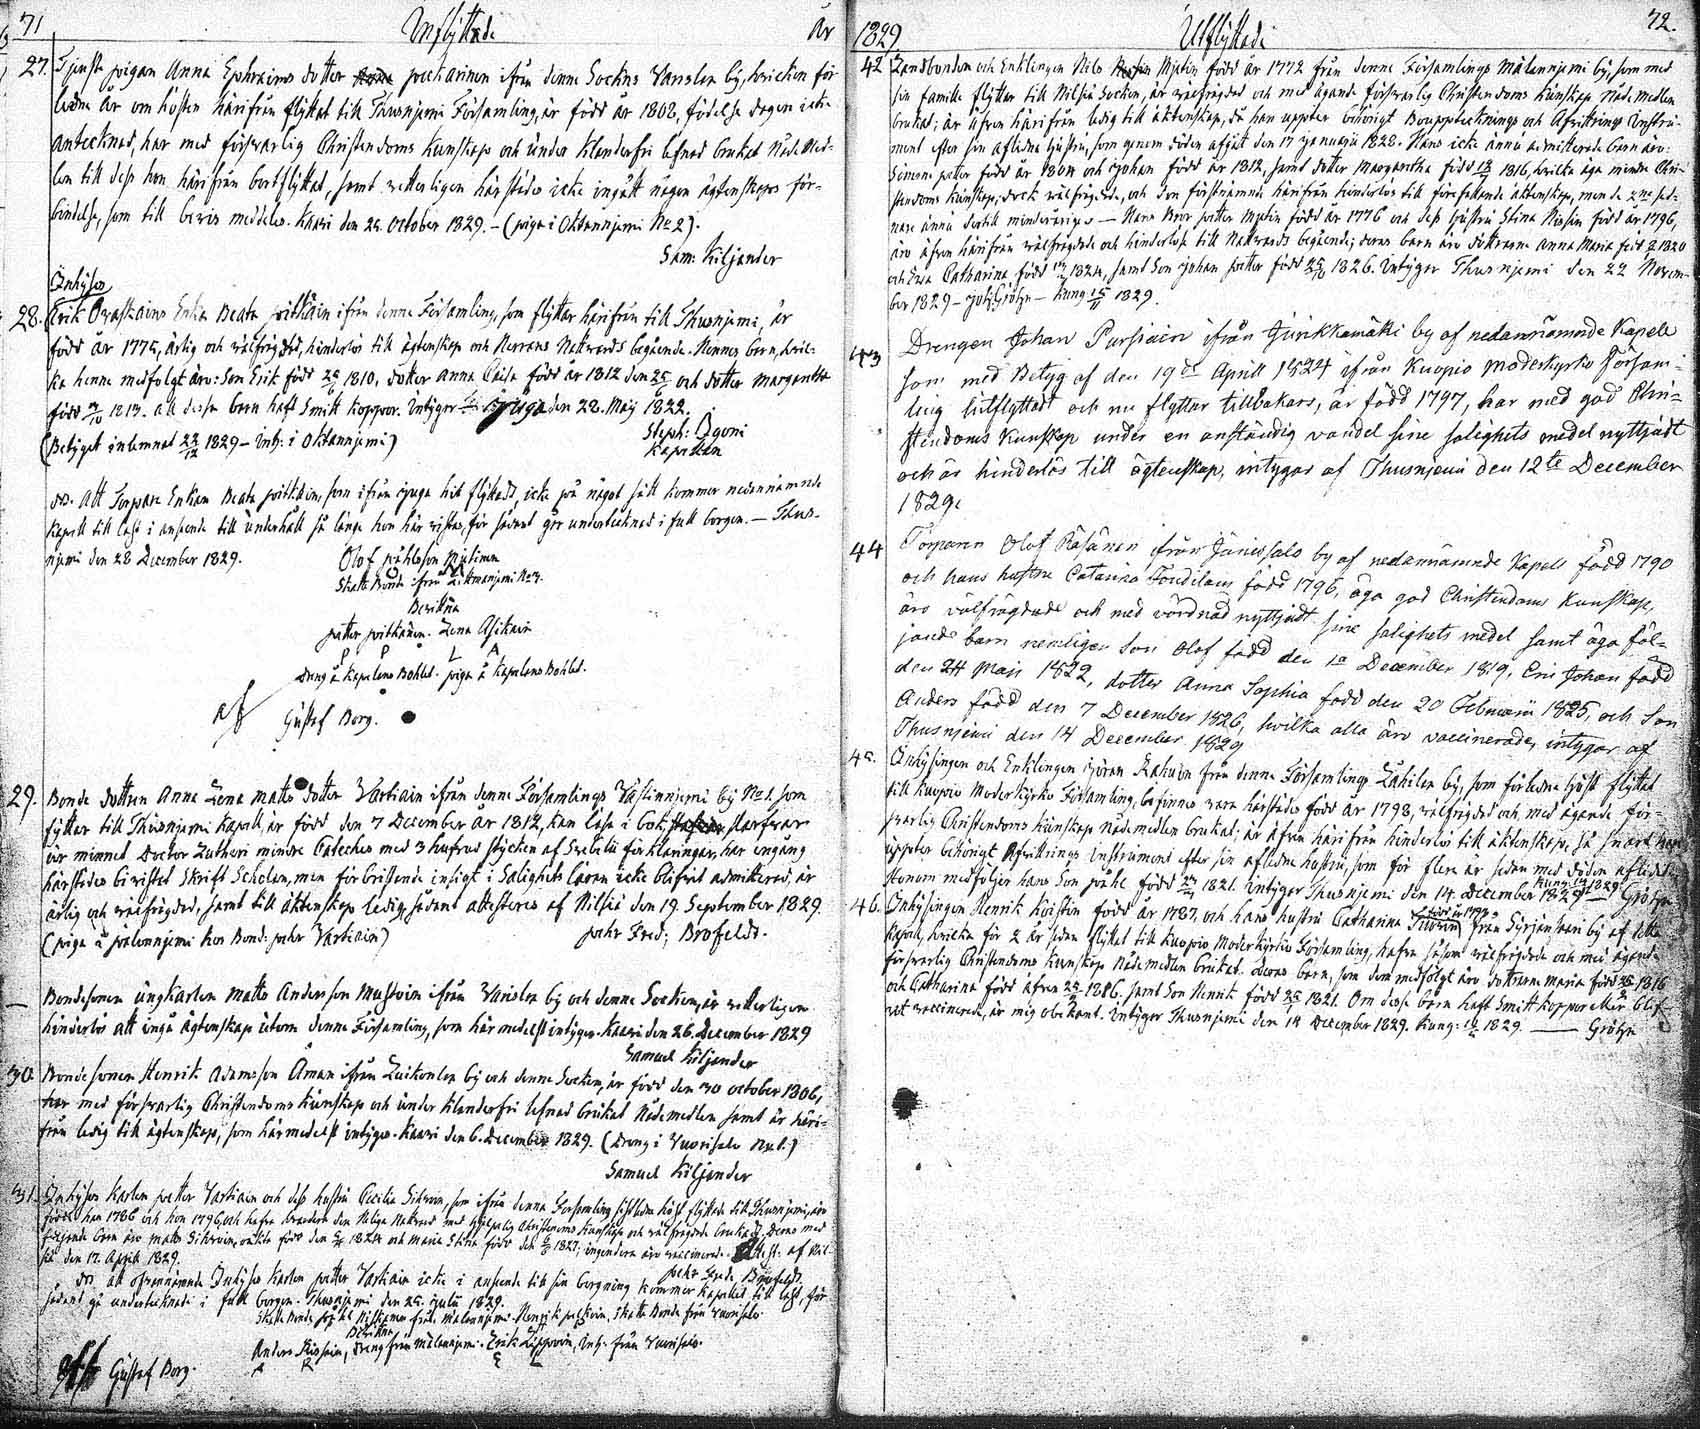 71 Inflyttade År
27. Tjenste pigan Anna Ephraims dotter pitkarinen ifrån denne Sockns Vanslax by, hvicken för-
ledne år om hösten härifrån flyttat till Thusnjemi Församling, är född år 1808, födelse dagen icke
antecknad, har med försvarlig Christendoms Kunskap och under klanderfri lefnad brukat Nåde Med-
len till dess hon härifrån bortflyttat, samt vetterligen härstädes icke ingått någon ägtenskaps för-
bindelse, som till bevis meddeles. Kaavi den 25 October 1829. – (piga i Ohtaanjemi No 2)
Sam: Kiljander
Inhyses
28. Erik Oraskains Enka Beata pitkäin ifrån denne Församling, som flyttar härifrån till Thusnjemi, är
född år 1775, ärlig och välfrägdad, hinderlös till ägtenskap och Herrans Nattvards begående. Hennes barn, hvil-
ka henne medfölgt äro: Son Erik född 1810, dotter Anna Caisa född år 1812 den och dotter Margaretha
född 1813. all dessa barn haft Smitt koppor. Intygar Juga den 28. Maij 1822.
Steph: Agoni
Kapellan
(Betyget inlemnat 22/12 1829 – Inh: i Ohtaanjemi)
Att Torpare Enkan Beata pitkäin, som ifrån Juga hit flyttadt, icke på något sätt kommer nedannämnde
Kapell till last i anseende till underhåll så länge hon här vistas, för sådant går undertecknad i full borgen. – Thus-
njemi den 28 December 1829.
Olof påhlsson Mutinen
Skatte Bonde ifrån Littmanjemi No 3.
Bevittna
petter pitkänen. Lena Asikain
P P L A
dreng å Kapelans Bohlet. piga å Kapelans Bohlet.
Gustaf Borg.
29. Bonde dottren Anna Lena Matts dotter Vartiain ifrån denne Församlings Västinnjemi by No 1. som
flyttar till Thusnjemi Kapell, är född den 7 December år 1812, kan läsa i bok, starfvar
ur minnet Doctor Lutheri mindre Cateches med 3 hufvud stycken af Svebelii förklaringar, har engång
härstädes bivistat Skrift Scholan, men för bristande insigt i Salighets läran icke blifvit admitterad, är
ärlig och välfrägdad, samt till äktenskap ledig, sådant attesteras af Nilsiä den 19. September 1829.
(piga i pålonnjemi hos Bond: pehr Vartiain) pehr Fred: Brofeldt.
— Bondesonen ungkarlen Matts Andersson Mustoin ifrån Vaislax by och denne Socken, är vetterligen
hinderlös att ingå ägtenskap utom denne Församling, som härmedelst intygas. Kaavi den 26. December 1829
Samuel Kiljander
30 Bonde sonen Henrik Adamsson Åman ifrån Luikonlax by och denne Socken, är född den 30 october 1806,
har med försvarlig Christendoms kunskap och under klanderfri lefnad brukat Nådemedlen samt är häri-
från ledig till ägtenskap, som härmedelst intygas. Kaavi den 6. December 1829. (Dreng i Vuorisalo No 1.)
Samuel Kiljander
31. Inhyses Karlen petter Vartiain och dess hustru Cecilia Sihvoin, som ifrån denna Församling sistledne höst flyttade till Thusnjemi, äro
födde han 1786 och hon 1796, och hafva hvardera den Heliga Nattvard med hjelplig Christendoms kunskap och välfrägdade brukadt. Deras med
följande barn äro Matts Sihvoin, oäkta född den 1824 och Maria Stina född den 1827; ingendera äro vaccinerade. Attest: af Nil-
siä den 17. April 1829.
pehr Fredr Brofeldt.
att ofvannämnde Inhyses Karlen petter Vartiain icke i anseende till sin bergning kommer Kapellet till last, för
sådant gå undertecknade i full borgen. Thusnjemi den 25. Julii 1829.
Skatte Bonde från Målannjemi. Henrik Skatte Bonde från Vuorisalo.
Bevittna
Anders Rissain, dreng från Målannjemi. Erik Lipsvoin, Inh: från Vuorisalo.
A R E L
Gustaf Borg.
1829 Utflyttade 72.
42 Landbonden och Enklingen Nils Mutin född år 1772 från denne Församlings Målannjemi by, som med
sin familie flyttar till Nilsiä Socken, är välfrägdad och med ägande försvarlig Christendoms kunskap Nådemedlen
brukat; är äfven härifrån ledig till äktenskap, då han uppter behörigt Bouppteckninge och Afvittrings Instru-
ment efter sin aflidna hustru, som genom döden afgick den 17 januarii 1828. Hans icke ännu admitterade barn äro:
Simoni petter född år 1804 och Johan född år 1812, samt dotter Margaretha född 1816, hvilka äga mindre Chri-
stendoms kunskap, dock välfrägdade, och den förstnämnde härifrån hinderlös till förefallande äktenskap, men de 2ne sed-
nare ännu dertill minderåriga. — Hans Bror petter Mutin född år 1776 och dess hustru Stina Nissin född år 1796,
äro äfven härifrån välfrägdade och hinderlösa till Nattvards begående; deras barn äro döttrarne Anna Maria född 1820
och Eva Catharina född 1824, samt Son Johan petter född 1826. Intygar Thusnjemi den 22 Novem-
ber 1829 – Joh: Gröhn – Kung: 15/11 1829.
43 Drengen Johan Purhiain ifrån Jurikkamäki by af nedannämnde Kapell
som med Betyg af den 19de Aprill 1824 ifrån Kuopio moderkyrko Försam-
ling hitflyttadt och nu flyttar tillbakars, är född 1797, har med god Chri-
stendoms kunskap under en anständig vandel sine salighets medel nyttjadt
och är hinderlös till ägtenskap, intygas af Thusnjemi den 12te December
1829.
44 Torparen Olof Räsänen ifrån Jänissalo by af nedannämnde Kapell född 1790
och hans hustru Catarina Toudilain född 1796, äga god Christendoms kunskap,
äro välfrägdade och med vördnad nyttjadt sine salighets medel samt äga föl-
jande barn nemligen Son Olof född den 1a December 1819, Eric Johan född
den 24 Maji 1822, dotter Anna Sophia född den 20 Februarii 1825, och Son
Anders född den 7 December 1826, hvilka alla äro vaccinerade, intygar af
Thusnjemi den 14 December 1829
45. Inhysingen och Enklingen Göran Rahuin från denna Församlings Lahilax by, som förledne höst flyttat
till Kuopio Moderkyrko Församling, befinnes vara härstädes född år 1798, välfrägdad och med ägande för-
svarlig Christendoms kunskap Nådemedlen brukat; är äfven härifrån hinderlös till äktenskap, så snart han
uppter behörigt Afvittrings Instrument efter sin aflidne hustru, som för flera år sedan med döden aflidit.
Honom medföljer hans Son påhl född 1821. Intygar Thusnjemi den 14. December 1829. Gröhn
46. Inhysingen Henrik Koistin född år 1787, och hans hustru Catharina född år 1794 från Syrjänsaari by af detta
Kapell, hvilka för 2 år sedan flyttat till Kuopio Moderkyrko Församling, hafva såsom välfrägdade och med ägande
försvarlig Christendoms kunskap Nådemedlen brukat. Deras barn, som dem medfölgt äro döttrarne Maria född 1816
och Catharina född äfven 1816. samt Son Henrik född 1821. Om dessa barn haft Smittkoppor eller blif-
vit vaccinerade, är mig obekant. Intygar Thusnjemi den 14 December 1829. Kung: 1829. — Gröhn